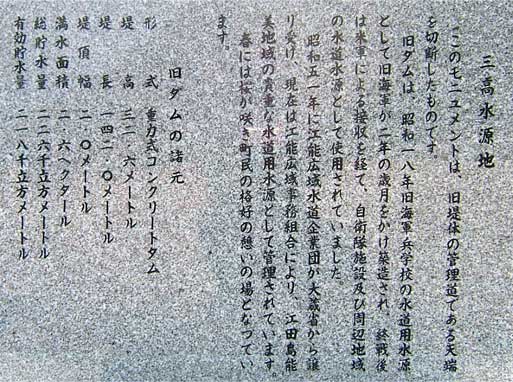 三高水源地
このモニュメントは、旧堤体の管理道である天端
を切断したものです。
旧ダムは、昭和一八年旧海軍兵学校の水道用水源
として旧海軍が二年の歳月をかけ築造され、終戦後
は米軍による接収を経て、自衛隊施設及び周辺地域
の水道水源として使用されていました。
昭和五一年に江能広域水道企業団が大蔵省から譲
り受け、現在は江能広域事務組合により、江田島能
美地域の貴重な水道用水源として管理されています。
春には桜が咲き町民の格好の憩いの場となってい
ます。
旧ダムの諸元
形式 重力式コンクリートダム
堤高 三二・六メートル
堤長 一四二・〇メートル
堤頂幅 二・〇メートル
満水面積 二・六ヘクタール
総貯水量 二二六千立方メートル
有効貯水量 二一八千立方メートル